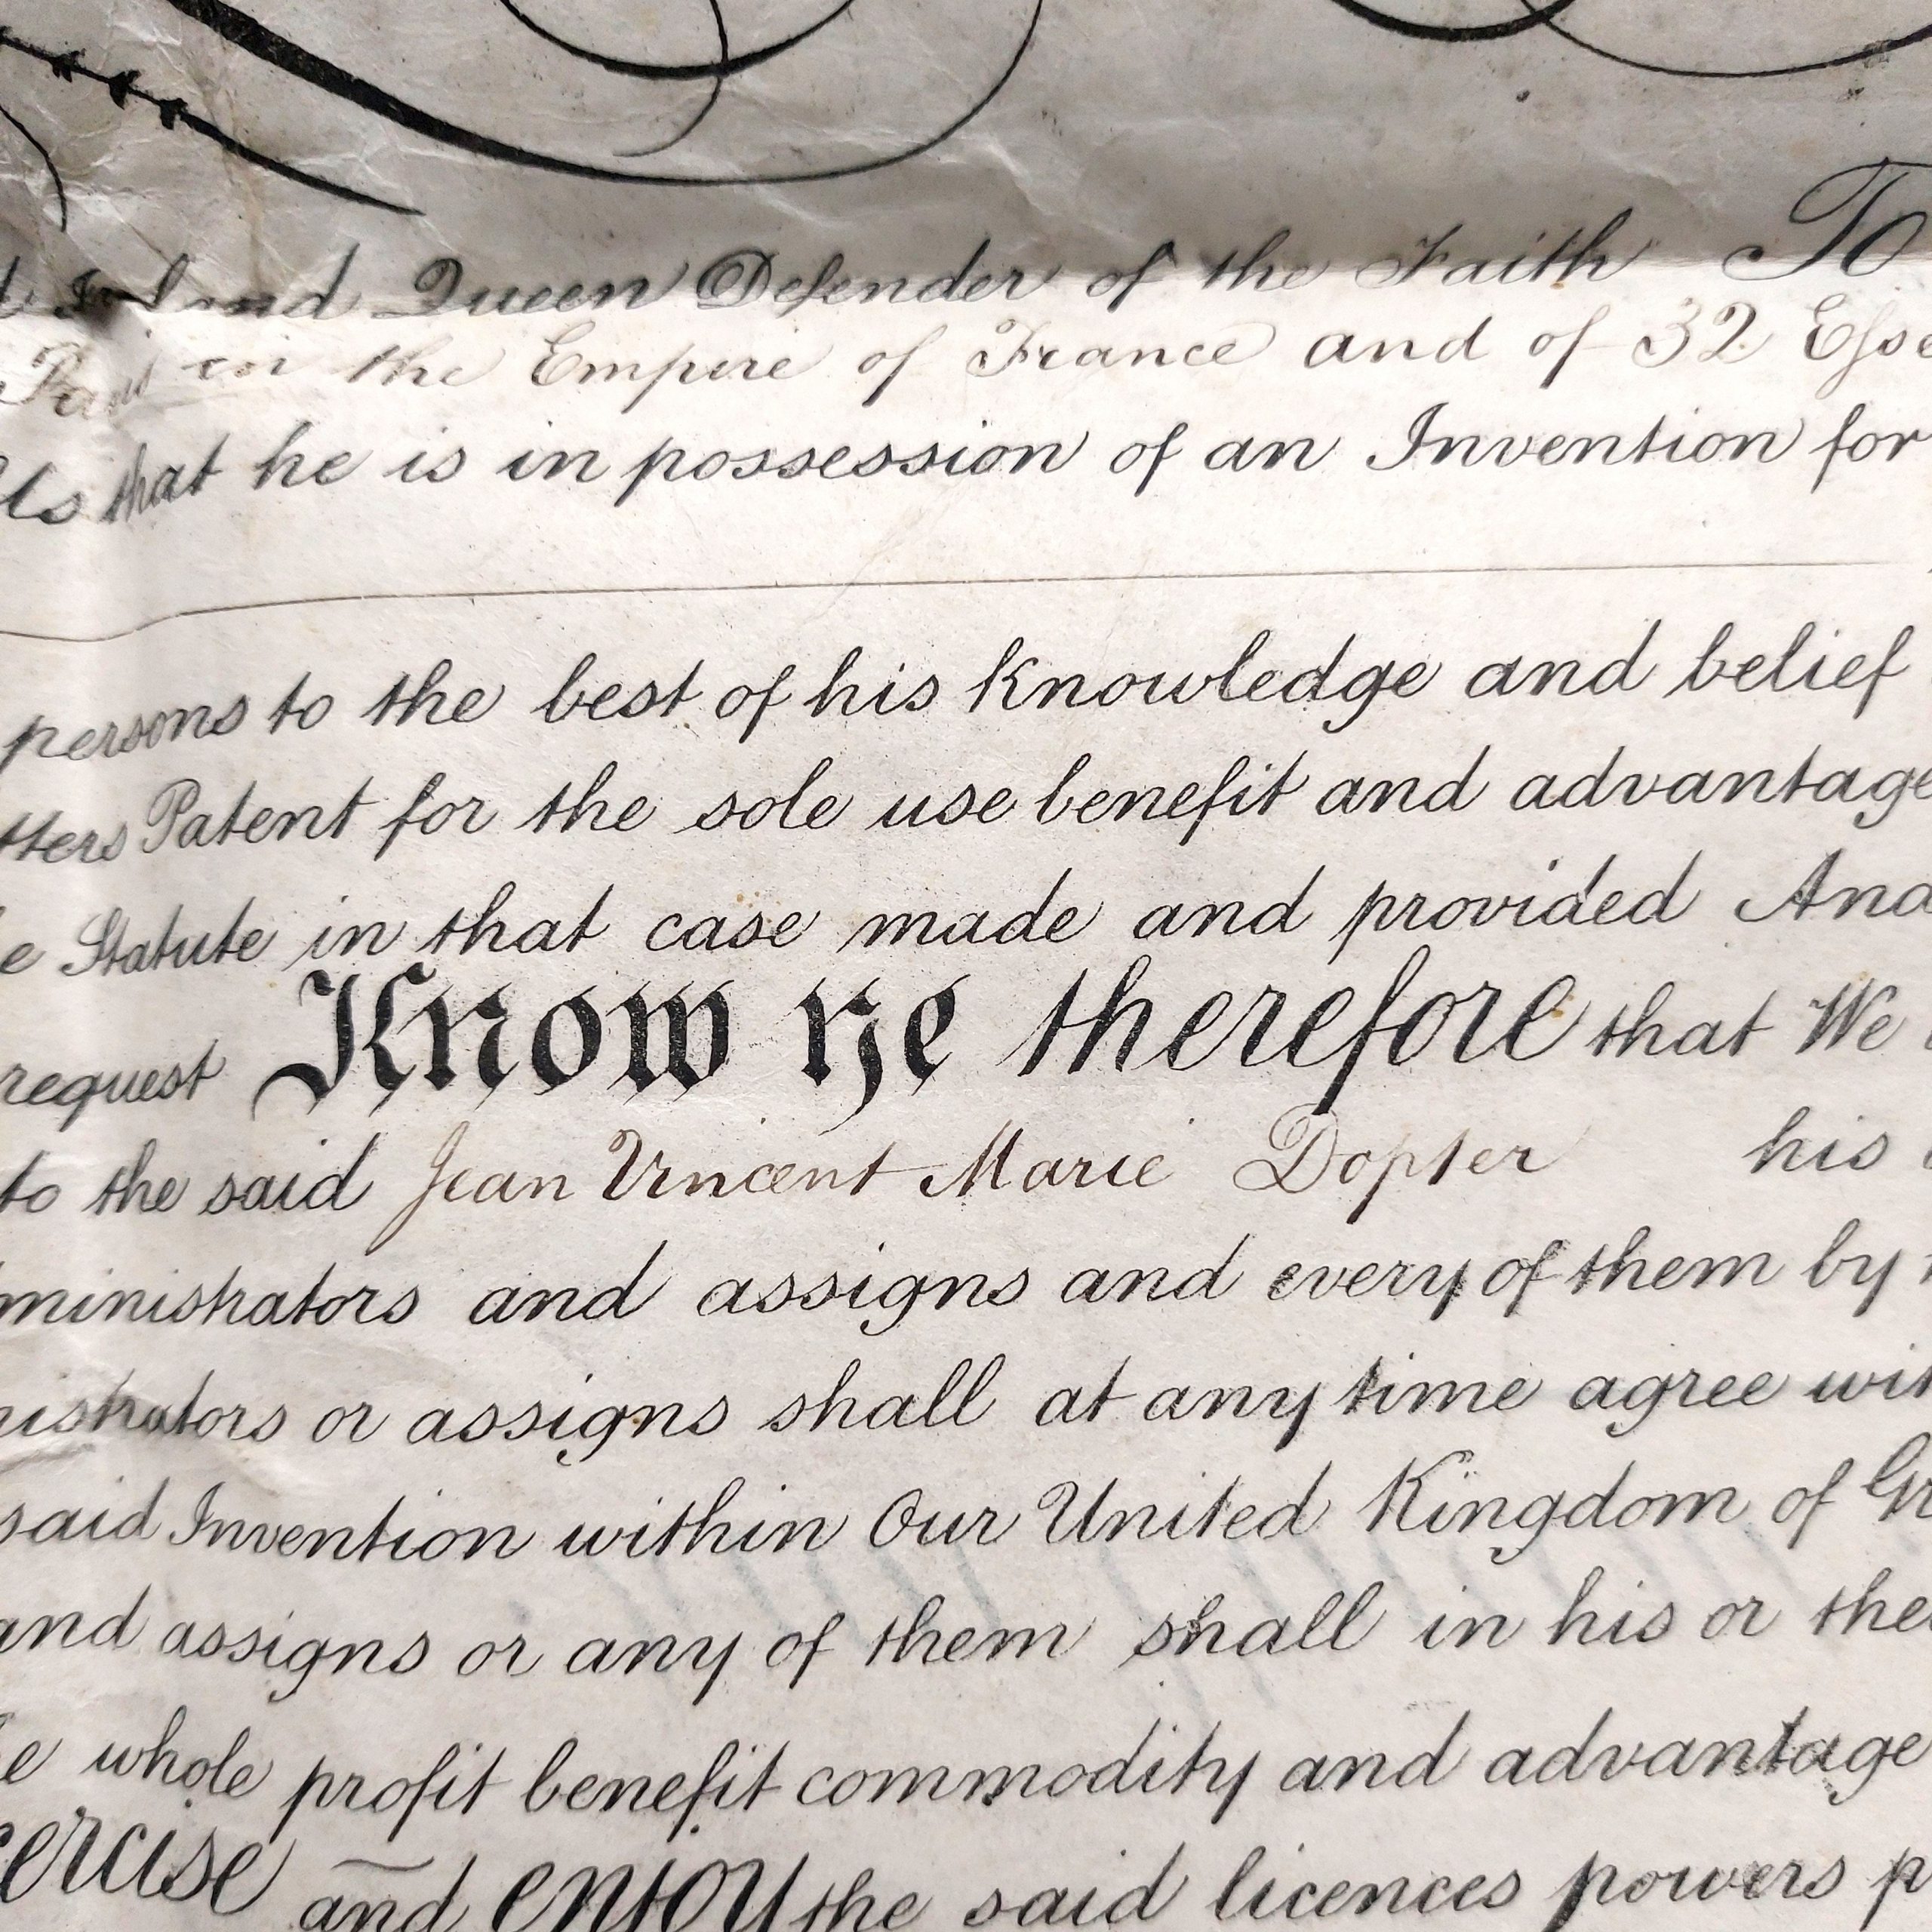 Ireland Queen Defender of the Faith To
Paris in the Empire of France and of 32 Esse
Us that he is in possession of an Invention for
persons to the best of his knowledge and belief
tters Patent for the sole use benefit and advantage
e Statute in that case made and provided And
request Know ye therefore that We
to the said Jean Vincent Marie Dopter his
ministrators and assigns and every of them by
nistrators or assigns shall at any time agree wit
said Invention within Our United Kingdom of Gr
and assigns or any of them shall in his or thei
e whole profit benefit commodity and advantage
ercise and enjoy the said licences powers p